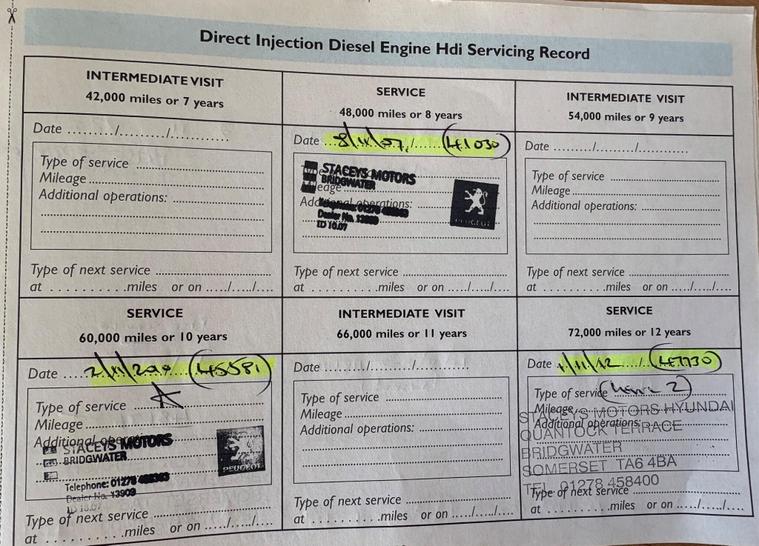 Direct Injection Diesel Engine Hdi Servicing Record
INTERMEDIATE VISIT
42,000 miles or 7 years
Date ....../........./............
Type of service ..............................
Mileage ..............................
Additional operations: ..............................
Type of next service ..............................
at ..........miles or on ...../...../....
SERVICE
48,000 miles or 8 years
Date 8/11/07 (41030)
STACEYS MOTORS
BRIDGWATER
Mileage
Additional operations:
Dealer No. 13909
ID 10.07
PEUGEOT
Type of next service ..............................
at ..........miles or on ...../...../....
INTERMEDIATE VISIT
54,000 miles or 9 years
Date ........./........./.........
Type of service ..............................
Mileage ..............................
Additional operations: ..............................
Type of next service ..............................
at ..........miles or on ...../...../....
SERVICE
60,000 miles or 10 years
Date (45581)
Type of service A
Mileage
Additional
STACEYS MOTORS
BRIDGWATER
PEUGEOT
Telephone: 01278
Dealer No. 13909
ID 10.07
Type of next service ..............................
at ..........miles or on ...../...../....
INTERMEDIATE VISIT
66,000 miles or 11 years
Date ........./........./.........
Type of service ..............................
Mileage ..............................
Additional operations: ..............................
Type of next service ..............................
at ..........miles or on ...../...../....
SERVICE
72,000 miles or 12 years
Date 1/11/12 (47730)
Type of service
Mileage
STACEYS MOTORS HYUNDAI
Additional operations:
QUANTOCK TERRACE
BRIDGWATER
SOMERSET TA6 4BA
TEL 01278 458400
Type of next service ..............................
at ..........miles or on ...../...../....